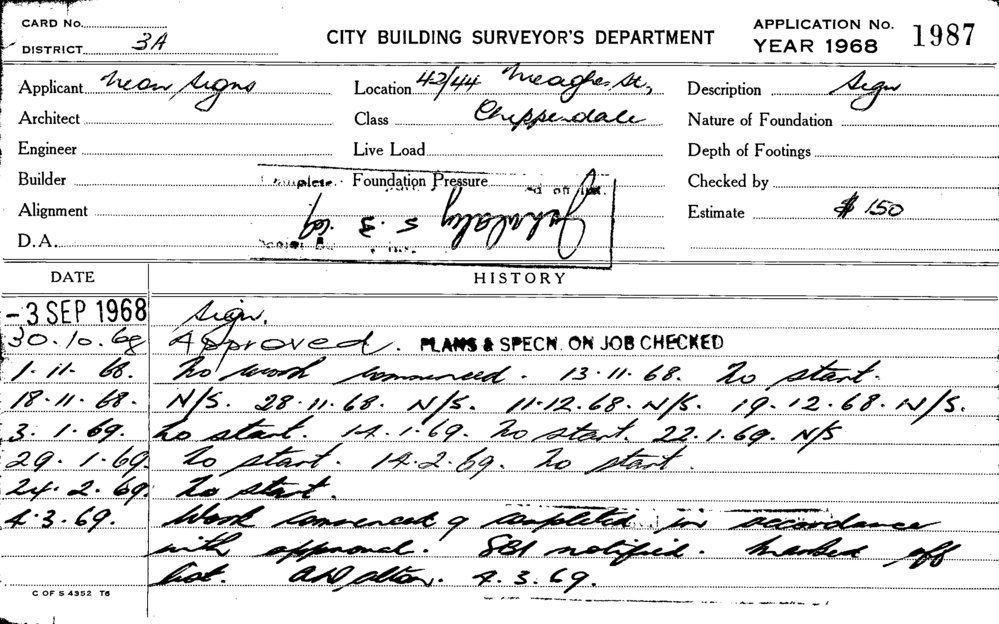 CARD No.
DISTRICT 3A
CITY BUILDING SURVEYOR'S DEPARTMENT
APPLICATION No. 1987
YEAR 1968
Applicant Neon Signs
Location 42/44 Meagher St,
Description Sign
Architect
Class Chippendale
Nature of Foundation
Engineer
Live Load
Depth of Footings
Builder
Foundation Pressure
Checked by
Alignment
5.3.69
Estimate $ 150
D.A.
DATE HISTORY
-3 SEP 1968 Sign.
30.10.68 Approved. PLANS & SPECN. ON JOB CHECKED
1.11.68. No work commenced. 13.11.68. No start.
18.11.68. N/S. 28.11.68. N/S. 11.12.68. N/S. 19.12.68. N/S.
3.1.69. No start. 14.1.69. No start. 22.1.69. N/S
29.1.69. No start. 14.2.69. No start.
24.2.69. No start.
4.3.69. Work commenced & completed in accordance
with approval. SBI notified. Marked off
list. 4.3.69.
C OF S 4352 T6